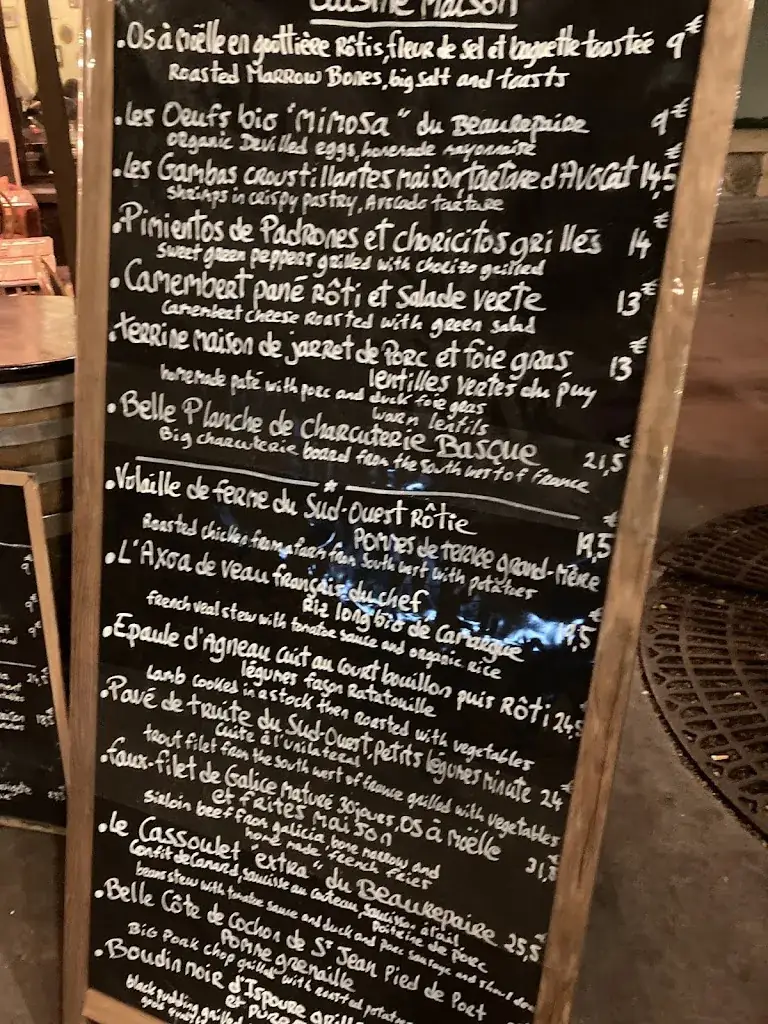 Cuisine Maison
.Os à moëlle en gouttière Rôtis, fleur de sel et baguette toastée 9€
Roasted Marrow Bones, big salt and toasts
.Les Oeufs bio "Mimosa" du Beaurepaire 9€
organic Devilled eggs, homemade mayonnaise
.Les Gambas croustillantes maison, tartare d'Avocat 14,5€
Shrimps in crispy pastry, Avocado tartare
.Pimientos de Padrones et choricitos grillés 14€
Sweet green peppers grilled with chorizo grilled
.Camembert pané Rôti et Salade verte 13€
Camembert cheese Roasted with green salad
.terrine maison de jarret de Porc et foie gras 13€
lentilles vertes du puy
homemade paté with porc and duck foie gras
warm lentils
.Belle Planche de Charcuterie Basque 21,5€
Big charcuterie board from the South west of France
.Volaille de ferme du Sud-Ouest Rôtie 19,5€
Pommes de terre grand-Mère
Roasted chicken from a farm from South west with potatoes
.L'Axoa de veau français du chef 19,5€
Riz long bio de Camargue
french veal stew with tomatoe sauce and organic rice
.Epaule d'Agneau cuit au court bouillon puis Rôti 24,5€
légumes façon Ratatouille
Lamb cooked in a stock then roasted with vegetables
.Pavé de truite du Sud-Ouest, petits légumes minute 24€
cuite à l'unilateral
trout filet from the south west of france grilled with vegetables
.faux-filet de Galice Maturé 30 jours, Os à Moëlle 31,5
et frites maison
sirloin beef from galicia, bone marrow and
home made french fries
.Le Cassoulet "extra" du Beaurepaire 25,5€
Confit de Canard, saucisse au couteau, saucisson à l'ail,
poitrine de porc
beans stew with tomatoe sauce and duck and porc sausage and
.Belle Côte de Cochon de St Jean Pied de Port
Pomme grenaille
Big Pork chop grilled with roasted potatoes
.Boudin noir d'Ispoure
et Purée
black pudding grilled